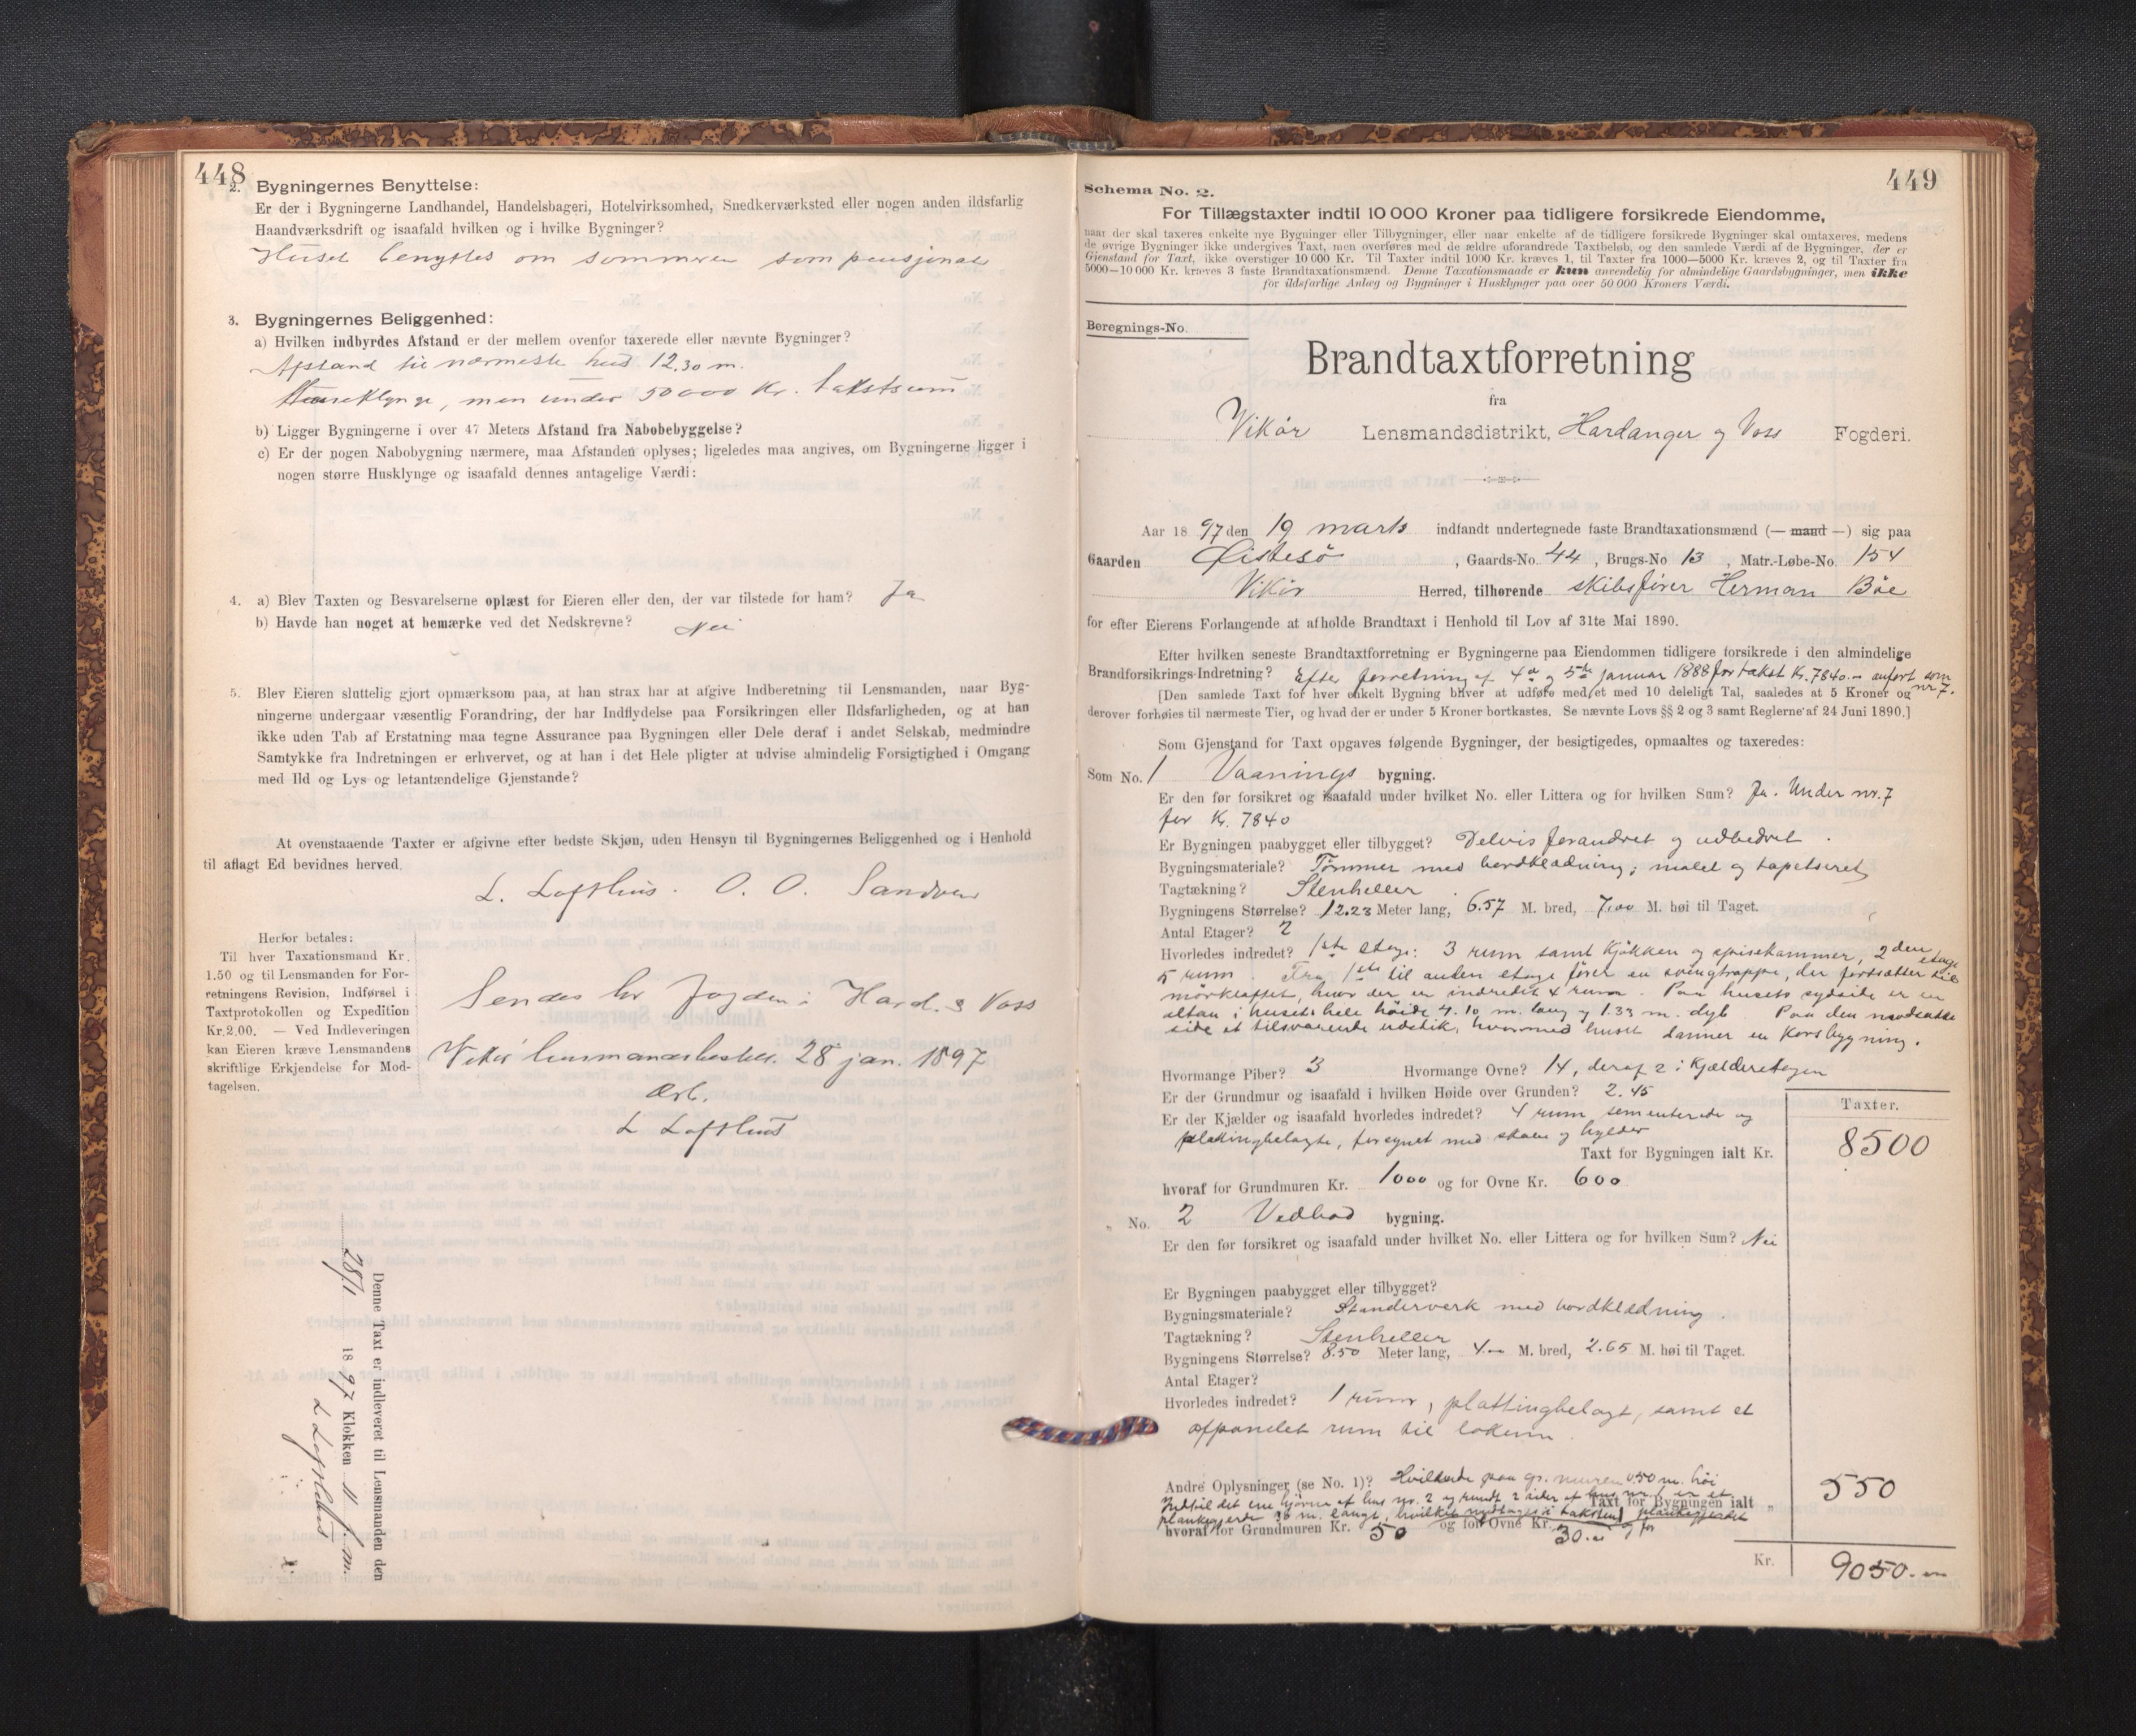 448
2. Bygningernes Benyttelse:
Er der i Bygningerne Landhandel, Handelsbageri, Hotelvirksomhed, Snedkerværksted eller nogen anden ildsfarlig
Haandværksdrift og isaafald hvilken og i hvilke Bygninger?
Huset benyttes om sommeren som pensjonat
3. Bygningernes Beliggenhed:
a) Hvilken indbyrdes Afstand er der mellem ovenfor taxerede eller nævnte Bygninger?
Afstand til nærmeste hus 12.30 m.
Huseklynge, men under 50000 Kr. takstsum
b) Ligger Bygningerne i over 47 Meters Afstand fra Nabobebyggelse?
c) Er der nogen Nabobygning nærmere, maa Afstanden oplyses; ligeledes maa angives, om Bygningerne ligger i
nogen større Husklynge og isaafald dennes antagelige Værdi:
4. a) Blev Taxten og Besvarelserne oplæst for Eieren eller den, der var tilstede for ham? Ja
b) Havde han noget at bemærke ved det Nedskrevne? Nei
5. Blev Eieren sluttelig gjort opmærksom paa, at han strax har at afgive Indberetning til Lensmanden, naar Byg-
ningerne undergaar væsentlig Forandring, der har Indflydelse paa Forsikringen eller Ildsfarligheden, og at han
ikke uden Tab af Erstatning maa tegne Assurance paa Bygningen eller Dele deraf i andet Selskab, medmindre
Samtykke fra Indretningen er erhvervet, og at han i det Hele pligter at udvise almindelig Forsigtighed i Omgang
med Ild og Lys og letantændelige Gjenstande?
At ovenstaaende Taxter er afgivne efter bedste Skjøn, uden Hensyn til Bygningernes Beliggenhed og i Henhold
til aflagt Ed bevidnes herved.
L. Lofthus. O. O. Sandven
Herfor betales:
Til hver Taxationsmand Kr.
1.50 og til Lensmanden for For-
retningens Revision, Indførsel i
Taxtprotokollen og Expedition
Kr. 2.00. — Ved Indleveringen
kan Eieren kræve Lensmandens
skriftlige Erkjendelse for Mod-
tagelsen.
Sendes hr Fogden i Hard. & Voss
Vikør lensmandsbestill. 28 jan. 1897
Ærb.
L Lofthus
Denne Taxt er indleveret til Lensmanden den
28/1 1897 Klokken 11 f.m.
L Lofthus
449
Schema No. 2.
For Tillægstaxter indtil 10 000 Kroner paa tidligere forsikrede Eiendomme,
naar der skal taxeres enkelte nye Bygninger eller Tilbygninger, eller naar enkelte af de tidligere forsikrede Bygninger skal omtaxeres, medens
de øvrige Bygninger ikke undergives Taxt, men overføres med de ældre uforandrede Taxtbeløb, og den samlede Værdi af de Bygninger, der er
Gjenstand for Taxt, ikke overstiger 10 000 Kr. Til Taxter indtil 1000 Kr. kræves 1, til Taxter fra 1000—5000 Kr. kræves 2, og til Taxter fra
5000—10 000 Kr. kræves 3 faste Brandtaxationsmænd. Denne Taxationsmaade er kun anvendelig for almindelige Gaardsbygninger, men ikke
for ildsfarlige Anlæg og Bygninger i Husklynger paa over 50 000 Kroners Værdi.
Beregnings-No.
Brandtaxtforretning
fra
Vikør Lensmandsdistrikt, Hardanger og Voss Fogderi.
Aar 1897 den 19 marts indfandt undertegnede faste Brandtaxationsmænd (— mand —) sig paa
Gaarden Østesø, Gaards-No. 44, Brugs-No 13, Matr.-Løbe-No. 154
Vikør Herred, tilhørende skibsfører Herman Bøe
for efter Eierens Forlangende at afholde Brandtaxt i Henhold til Lov af 31te Mai 1890.
Efter hvilken seneste Brandtaxtforretning er Bygningerne paa Eiendommen tidligere forsikrede i den almindelige
Brandforsikrings-Indretning? Efter forretning af 4de og 5te januar 1888 for takst Kr. 7840.— anført som nr 7.
[Den samlede Taxt for hver enkelt Bygning bliver at udføre med et med 10 deleligt Tal, saaledes at 5 Kroner og
derover forhøies til nærmeste Tier, og hvad der er under 5 Kroner bortkastes. Se nævnte Lovs §§ 2 og 3 samt Reglerne af 24 Juni 1890.]
Som Gjenstand for Taxt opgaves følgende Bygninger, der besigtigedes, opmaaltes og taxeredes:
Som No. 1 Vaanings bygning.
Er den før forsikret og isaafald under hvilket No. eller Littera og for hvilken Sum? Ja. Under nr. 7
for Kr. 7840
Er Bygningen paabygget eller tilbygget? Delvis forandret og udbedret.
Bygningsmateriale? Tømmer med bordklædning; malet og tapetseret
Tagtækning? Stenheller
Bygningens Størrelse? 12.23 Meter lang, 6.57 M. bred, 7.00 M. høi til Taget.
Antal Etager? 2
Hvorledes indredet? 1ste etage: 3 rum samt kjøkken og spisekammer, 2den etage
5 rum. Fra 1ste til anden etage fører en svingtrappe, der fortsætter til
mørkloftet, hvor der er indredet 4 rum. Paa husets sydside er en
altan i husets hele høide 4.10 m. lang og 1.33 m. dyb. Paa den modsatte
side et tilsvarende udstik, hvormed huset danner en korsbygning.
Hvormange Piber? 3 Hvormange Ovne? 14, deraf 2 i Kjælderetagen
Er der Grundmur og isaafald i hvilken Høide over Grunden? 2.45
Er der Kjælder og isaafald hvorledes indredet? 4 rum, sementerede og
plattingbelagte, forsynet med skabe og hylder
Taxter.
Taxt for Bygningen ialt Kr. 8500
hvoraf for Grundmuren Kr. 1000 og for Ovne Kr. 600
„ No. 2 Vedbod bygning.
Er den før forsikret og isaafald under hvilket No. eller Littera og for hvilken Sum? Nei
Er Bygningen paabygget eller tilbygget?
Bygningsmateriale? Standerverk med bordklædning.
Tagtækning? Stenheller
Bygningens Størrelse? 8.50 Meter lang, 4.— M. bred, 2.65 M. høi til Taget.
Antal Etager?
Hvorledes indredet? 1 rum, plattingbelagt, samt et
afpanelet rum til lokum.
Andre Oplysninger (se No. 1)? Hvilende paa gr. muren 0.50 m. høi
Indtil det ene hjørne af hus nr. 2 og rundt 2 sider af hus nr. 1 er et
plankegjerde 36 m. langt, hvilket medtages i taksten plankegjerdet
Taxt for Bygningen ialt „ 550
hvoraf for Grundmuren Kr. 50 og for Ovne Kr. og for 30.—
Kr. 9050.—